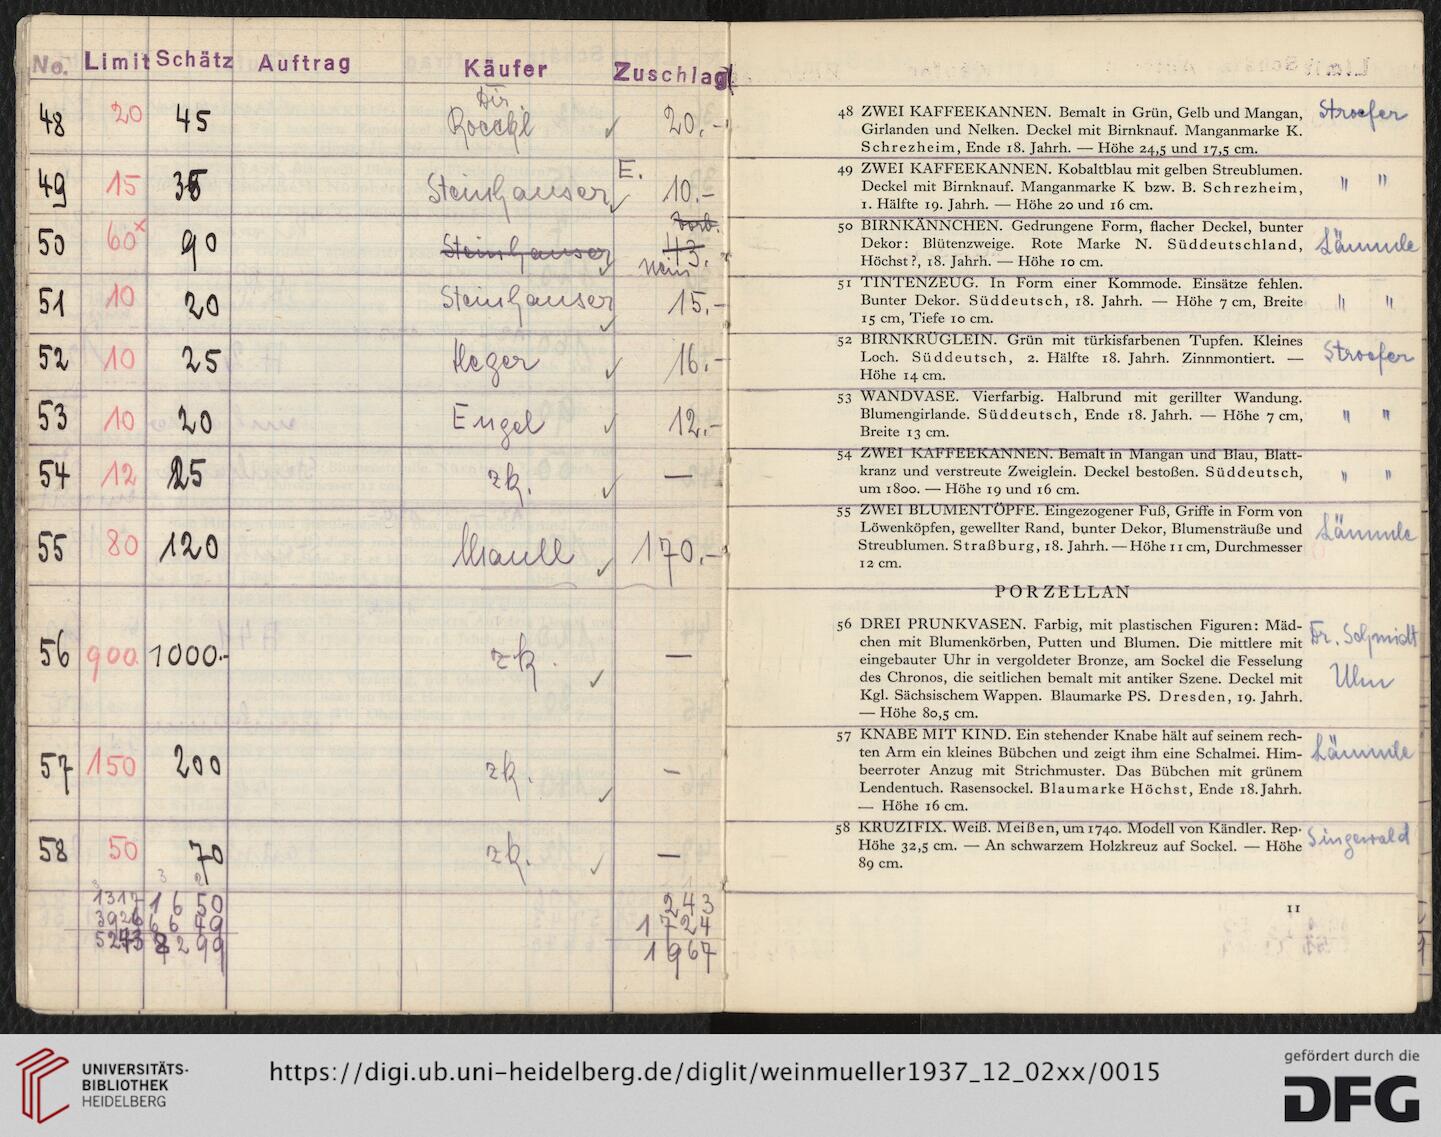 No. Limit Schätz Auftrag Käufer Zuschlag
48 20 45 Dir. Roeckl 20.-
49 15 35 Steinhauser E. 10.-
50 60x 90 Steinhauser 43. nein
51 10 20 Steinhauser 15.-
52 10 25 Heger 16.-
53 10 20 Engel 12.-
54 12 25 zk. —
55 80 120 170.-
56 900 1000.- zk. —
57 150 200 zk. —
58 50 70 zk. —
1317 1650 243
3926 6649 1724
5243 8299 1967
48 ZWEI KAFFEEKANNEN. Bemalt in Grün, Gelb und Mangan, Stroefer
Girlanden und Nelken. Deckel mit Birnknauf. Manganmarke K.
Schrezheim, Ende 18. Jahrh. — Höhe 24,5 und 17,5 cm.
49 ZWEI KAFFEEKANNEN. Kobaltblau mit gelben Streublumen.
Deckel mit Birnknauf. Manganmarke K bzw. B. Schrezheim, " "
1. Hälfte 19. Jahrh. — Höhe 20 und 16 cm.
50 BIRNKÄNNCHEN. Gedrungene Form, flacher Deckel, bunter
Dekor: Blütenzweige. Rote Marke N. Süddeutschland, Lämmle
Höchst?, 18. Jahrh. — Höhe 10 cm.
51 TINTENZEUG. In Form einer Kommode. Einsätze fehlen.
Bunter Dekor. Süddeutsch, 18. Jahrh. — Höhe 7 cm, Breite " "
15 cm, Tiefe 10 cm.
52 BIRNKRÜGLEIN. Grün mit türkisfarbenen Tupfen. Kleines
Loch. Süddeutsch, 2. Hälfte 18. Jahrh. Zinnmontiert. — Stroefer
Höhe 14 cm.
53 WANDVASE. Vierfarbig. Halbrund mit gerillter Wandung.
Blumengirlande. Süddeutsch, Ende 18. Jahrh. — Höhe 7 cm, " "
Breite 13 cm.
54 ZWEI KAFFEEKANNEN. Bemalt in Mangan und Blau, Blatt-
kranz und verstreute Zweiglein. Deckel bestoßen. Süddeutsch, " "
um 1800. — Höhe 19 und 16 cm.
55 ZWEI BLUMENTÖPFE. Eingezogener Fuß, Griffe in Form von
Löwenköpfen, gewellter Rand, bunter Dekor, Blumensträuße und Lämmle
Streublumen. Straßburg, 18. Jahrh. — Höhe 11 cm, Durchmesser
12 cm.
PORZELLAN
56 DREI PRUNKVASEN. Farbig, mit plastischen Figuren: Mäd- Dr. Schmidt
chen mit Blumenkörben, Putten und Blumen. Die mittlere mit
eingebauter Uhr in vergoldeter Bronze, am Sockel die Fesselung
des Chronos, die seitlichen bemalt mit antiker Szene. Deckel mit Ulm
Kgl. Sächsischem Wappen. Blaumarke PS. Dresden, 19. Jahrh.
— Höhe 80,5 cm.
57 KNABE MIT KIND. Ein stehender Knabe hält auf seinem rech- Lämmle
ten Arm ein kleines Bübchen und zeigt ihm eine Schalmei. Him-
beerroter Anzug mit Strichmuster. Das Bübchen mit grünem
Lendentuch. Rasensockel. Blaumarke Höchst, Ende 18. Jahrh.
— Höhe 16 cm.
58 KRUZIFIX. Weiß. Meißen, um 1740. Modell von Kändler. Rep. Singewald
Höhe 32,5 cm. — An schwarzem Holzkreuz auf Sockel. — Höhe
89 cm.
11
UNIVERSITÄTS-
BIBLIOTHEK
HEIDELBERG
https://digi.ub.uni-heidelberg.de/diglit/weinmueller1937_12_02xx/0015
gefördert durch die
DFG